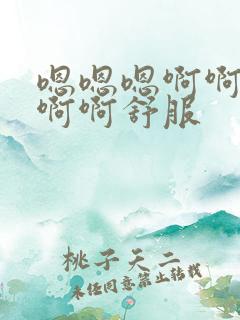 嗯嗯嗯啊啊
啊啊舒服
桃子天二
未任同意禁止转载